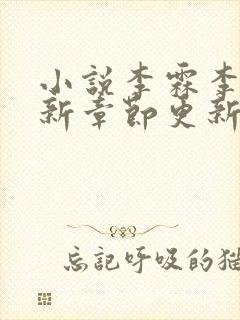 小说李霖李
新章节更新
忘记呼吸的猫